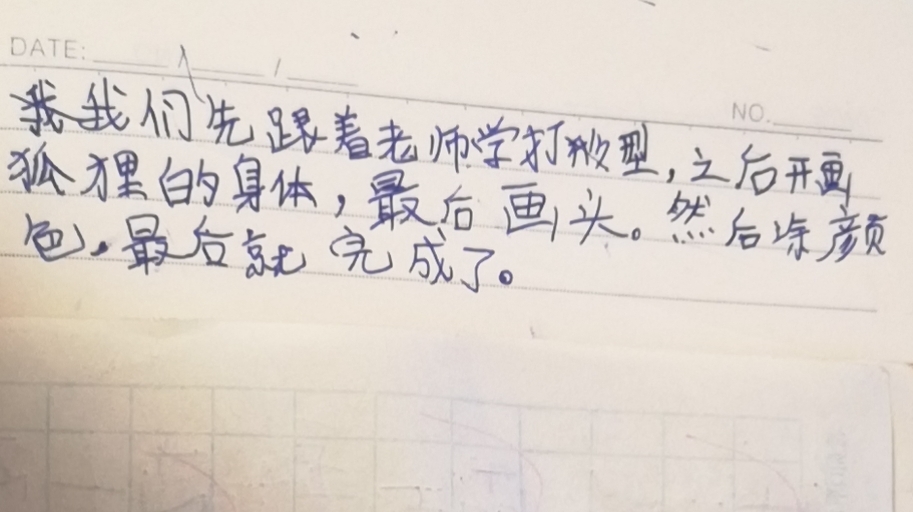 DATE: / /
NO.
我们先跟着老师学打形型,之后开画
狐狸的身体,最后画头。然后涂颜
色。最后就完成了。